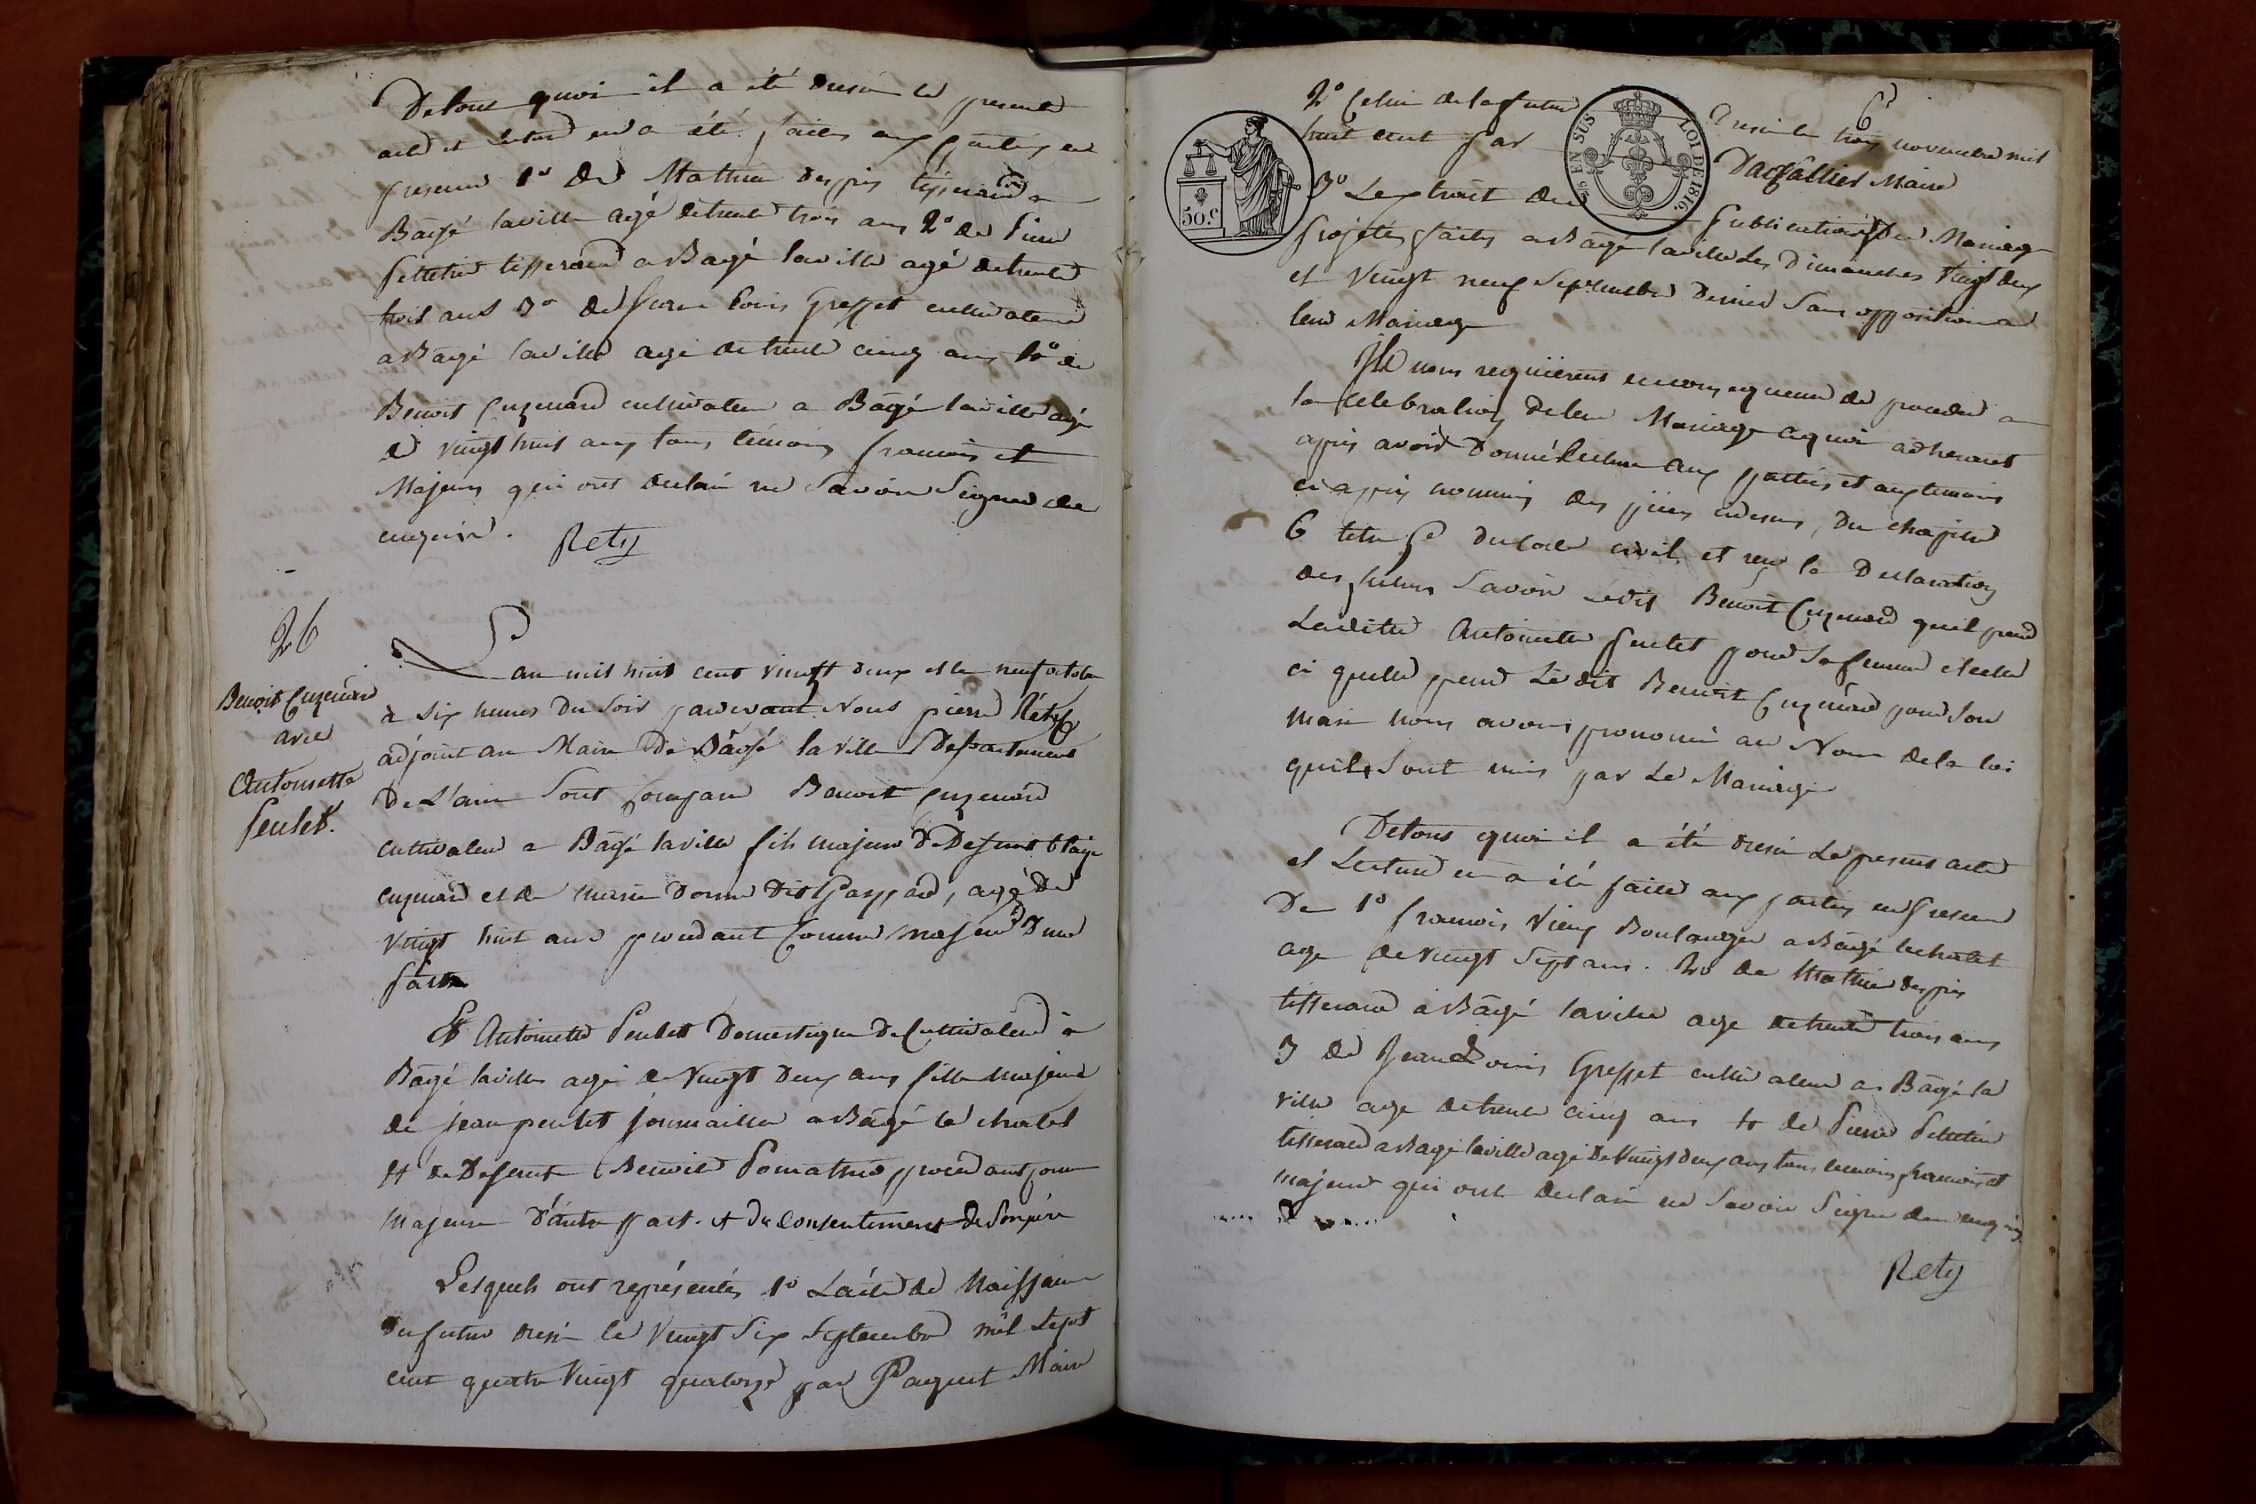 De tout quoi il a été dressé le present
acte et lecture en a été faite aux parties en
presence 1º De Mathieu Desprès tisserand a
Bagé laville agé de trente trois ans 2º de Pierre
Petitin tisserand a Bagé laville agé de trente
trois ans 3º de Jean Louis Greffet cultivateur
a Bagé laville agé de trente cinq ans 4º de
Benoit Cuzenard cultivateur a Bagé laville agé
de vingt huit ans tous témoins français et
Majeurs qui ont déclaré ne savoir signer de ce
enquis.
Rety
26
Benoit Cuzenard
avec
Antoinette
Peulet.
L'an mil huit cent vingt deux et le neuf octobre
à six heures du soir pardevant Nous pierre Réty
adjoint au Maire De Bâgé la ville Departement
De L'ain Sont Comparu Benoit Cuzenard
cultivateur a Bâgé laville fils majeur de Defunt blaise
cuzenard et de marie Donne dit Gaspard, agé De
vingt huit ans procedant comme majeur D'une
part
Et Antoinette Peulet Domestique De Cultivateur à
Bâgé laville agé de vingt deux ans fille Majeure
de jean peulet journaillier a Bâgé le chatel
et de Defunte Benoite Pomathio procedant comme
Majeure d'autre part. et du Consentement de Son père
Lesquels ont représentés 1º L'acte de Naissance
du futur dressé le vingt Six Septembre mil Sept
cent quatre vingt quatorze par Paquet Maire
6
2º Celui de la future Dressé le trois novembre mil
huit cent par Dagallier Maire
50 C.
25 C. EN SUS
LOI DE 1816.
3º L'extrait des publications De Mariage
projetés faites a Bâgé laville Les Dimanches vingt deux
et vingt neuf Septembre Dernier Sans opposition a
leur Mariage
Ils nous requièrent en consequence de proceder a
la celebration de leur Mariage a quoi adherant
après avoir Donné lecture aux parties et aux temoins
ci après nommés des pieces cidessus, du chapitre
6 titre 5e du Code civil et reçu la Declaration
des futurs Savoir Ledit Benoit Cuzenard qu'il prend
Ladite Antoinette peulet pour Sa femme et celle
ci quelle prend Le dit Benoit Cuzenard pour Son
mari nous avons prononcé au Nom de la loi
quils Sont unis par Le Mariage
De tous quoi il a été dressé Le present acte
et Lecture en a été faite aux parties en presence
De 1º francois Vieux Boulanger a Bâgé lechatel
age de vingt Sept ans. 2º de Mathieu Desprès
tisserand à Bâgé laville age de trente trois ans
3 de Jean Louis Greffet cultivateur a Bâgé la
ville age de trente cinq ans 4 de Pierre Petitin
tisserand a Bagé laville agé De vingt deux ans tous temoins francais et
majeurs qui ont declaré ne Savoir Signer de ce enquis
Rety